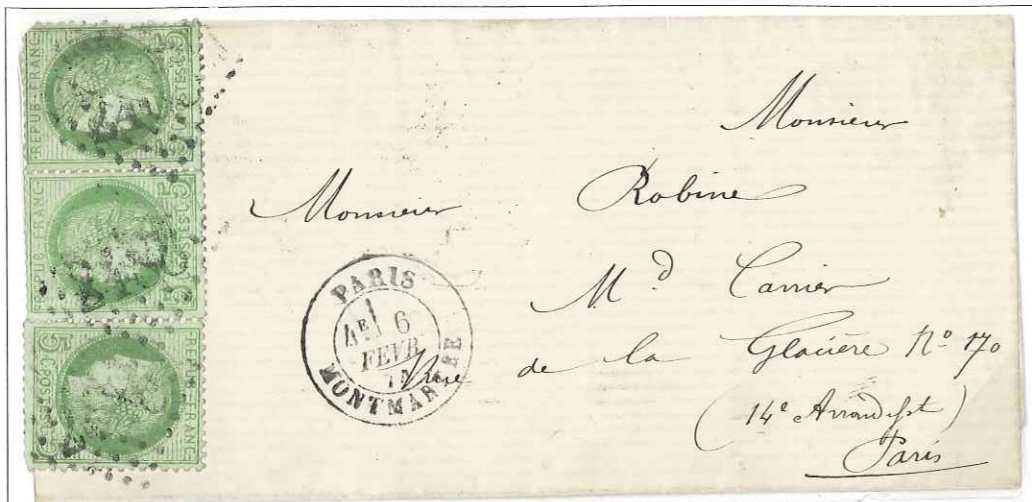 REPUB·FRANC
POSTES
REPUB·FRANC
POSTES
REPUB·FRANC
POSTES
Monsieur
Monsieur Robine
Md Carrier
Rue de la Glacière No 170
(14e Arrondist)
Paris
PARIS
4E 6
FEVR
MONTMARTRE